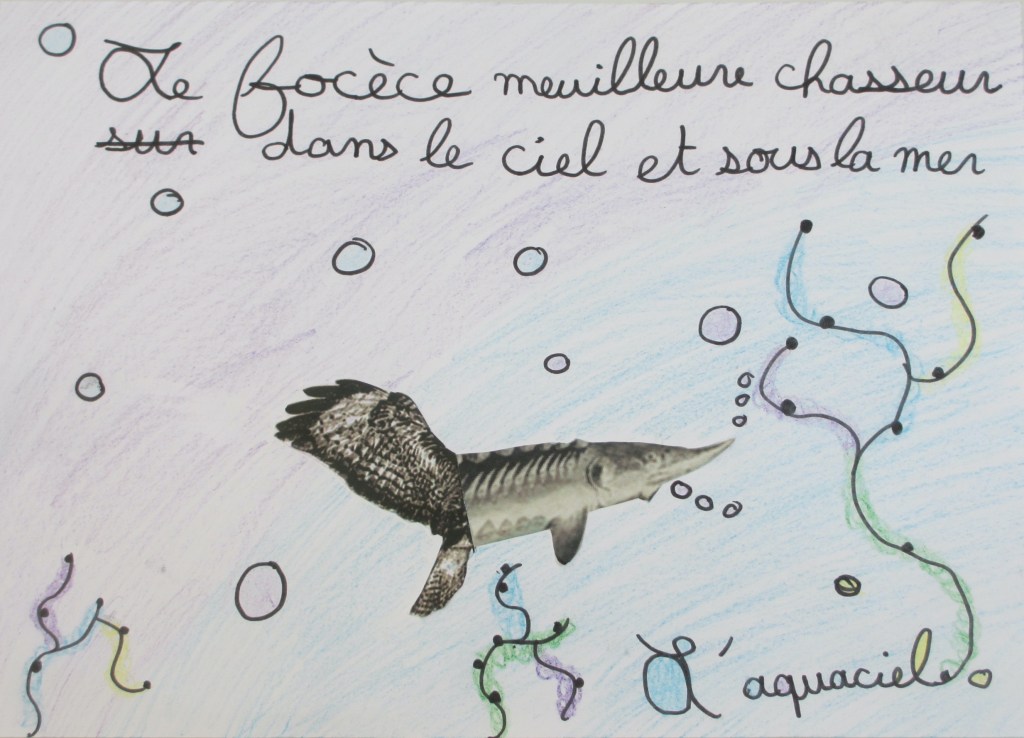 Le focèce meuilleure chasseur
sur dans le ciel et sous la mer
L'aquaciel